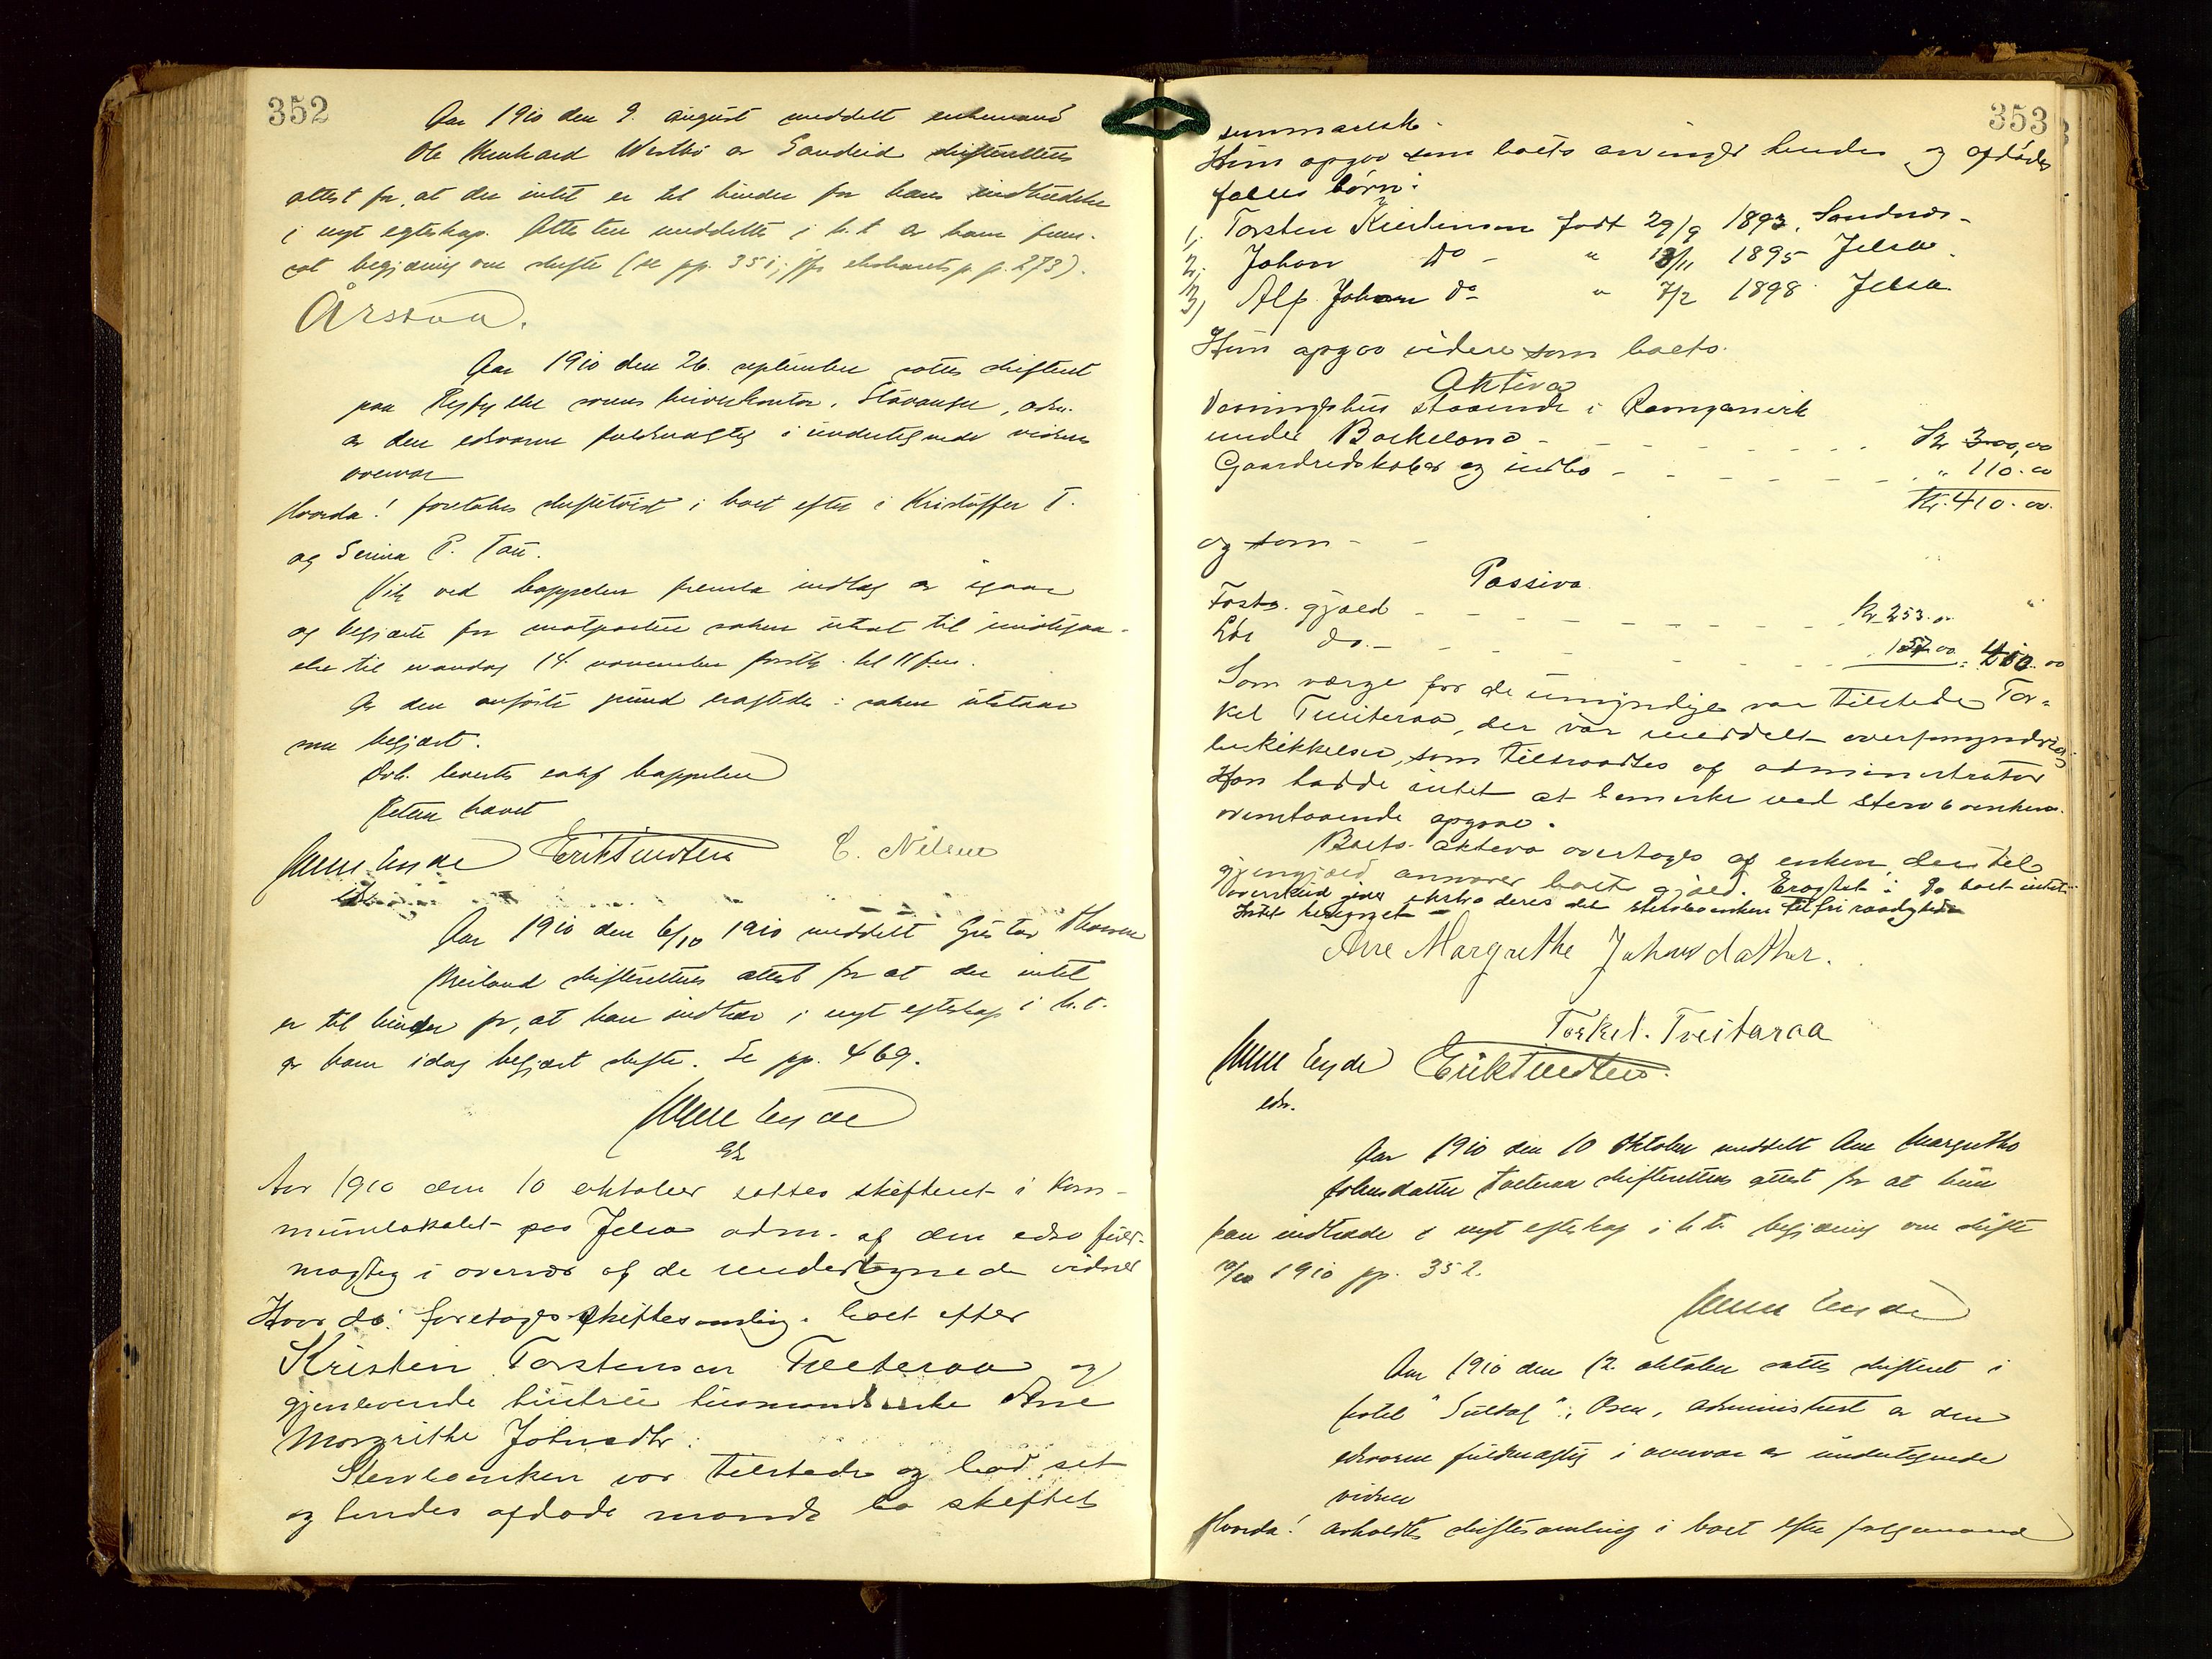 352
Aar 1910 den 9. august meddelt enkemand
Ole Westbö av Sandeid skifterettens
attest for, at der intet er til hinder for hans indtrædelse
i nyt egteskap. Attesten meddeltes i h.t. av ham frem-
sat begjæring om skifte (se pp. 351, jfr p. 273).
Aar 1910 den 26. september sattes skifteret
paa Ryfylke sorenskriverkontor, Stavanger, adm.
av den edsvorne fuldmægtig i undertegnede vidners
overvær
Hvorda! foretokes skiftetvist i boet efter Kristoffer T.
og Serina P. Tau.
Vik ved Kappelen fremla indlæg av igaar
og begjærte for motparten saken utsat til imøtegaa-
else til mandag 14. november førstk. kl 11 fm.
Av den anførte grund eragtedes: saken utstaar
som begjært.
Retten hævet
E. Nilsen
Aar 1910 den 6/10 1910 meddelt Gustav
skifterettens attest for at der intet
er til hinder for, at han indtræer i nyt egteskap i h.t.
av ham idag begjært skifte. Se pp. 469.
Aar 1910 den 10 oktober sattes skifteret i kom-
munelokalet paa Jelsa adm. af den edsv fuld-
mægtig i overvær af de undertegnede vidner
Hvorda: foretoges skiftesamling i boet efter
Kristen Torstensen Tveiteraa og
gjenlevende hustru husmandsenke Ane
Margrethe Johnsdtr.
Stervboenken var tilstede og bad sit
og hendes afdøde mands bo skiftet
353
summarisk.
Hun opgav som boets arvinger hendes og afdødes
fælles börn:
1, Torsten Kristensen født 29/9 1893, Sandnæs-
2, Johan do - " 13/11 1895 Jelsa.
3) Alf Johan do - " 7/2 1898 Jelsa
Hun opgav videre som boets
Aktiva
Vaaningshus staaende i
under Borkeland - Kr 300,00
Gaardredskaber og indbo - " 110.00
Kr. 410.00
og som -
Passiva
Fasts. gjæld - Kr 253.00
Lös do. - 157.00 = 410.00
Som værge for de umyndige var tilstede Tor-
kel Tveiteraa, der var meddelt overformynderi
beskikkelse, som tiltraadtes af administrator
Han hadde intet at bemerke ved stervboenkens
ovenstaaende opgave.
Boets aktiva overtages af enken, der til
gjengjæld ansvarer boets gjæld. Eragtet: Da boet intet
overskud giver ekstraderes det stervboenken til fri raadighed
Intet besegnet -
Ane Margrethe Johnsdather.
Torkel. Tveitaraa
edv.
Aar 1910 den 10 oktober meddelt Ane Margrethe
Johnsdatter Tveiteraa skifterettens attest for at hun
kan indtræde i nyt egteskap i h.t. begjæring om skifte
10/10 1910 pp. 352.
Aar 1910 den 12. oktober sattes skifteret i
hotel "Suldal", Osen, administrert av den
edsvorne fuldmægtig i overvær av undertegnede
vidner
Hvorda! avholdtes skiftesamling i boet efter